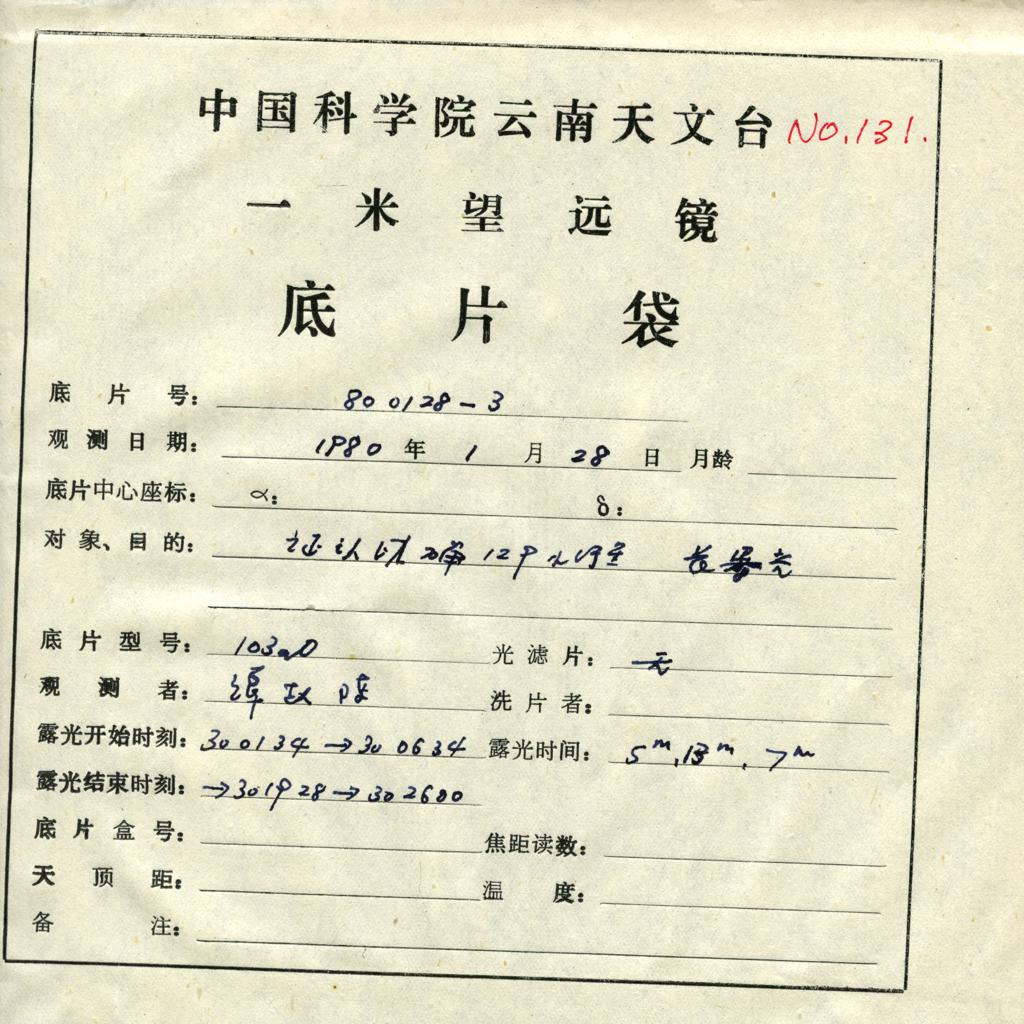 中国科学院云南天文台 No.131.
一米望远镜
底片袋
底片号: 800128-3
观测日期: 1980年1月28日 月龄
底片中心座标: α: δ:
对象、目的: 证认 129 小行星
底片型号: 103aO 光滤片: 无
观测者: 谭 洗片者:
露光开始时刻: 300134→300634 露光时间: 5m.13m.7m
露光结束时刻: →301928→302600
底片盒号: 焦距读数:
天顶距: 温度:
备注: